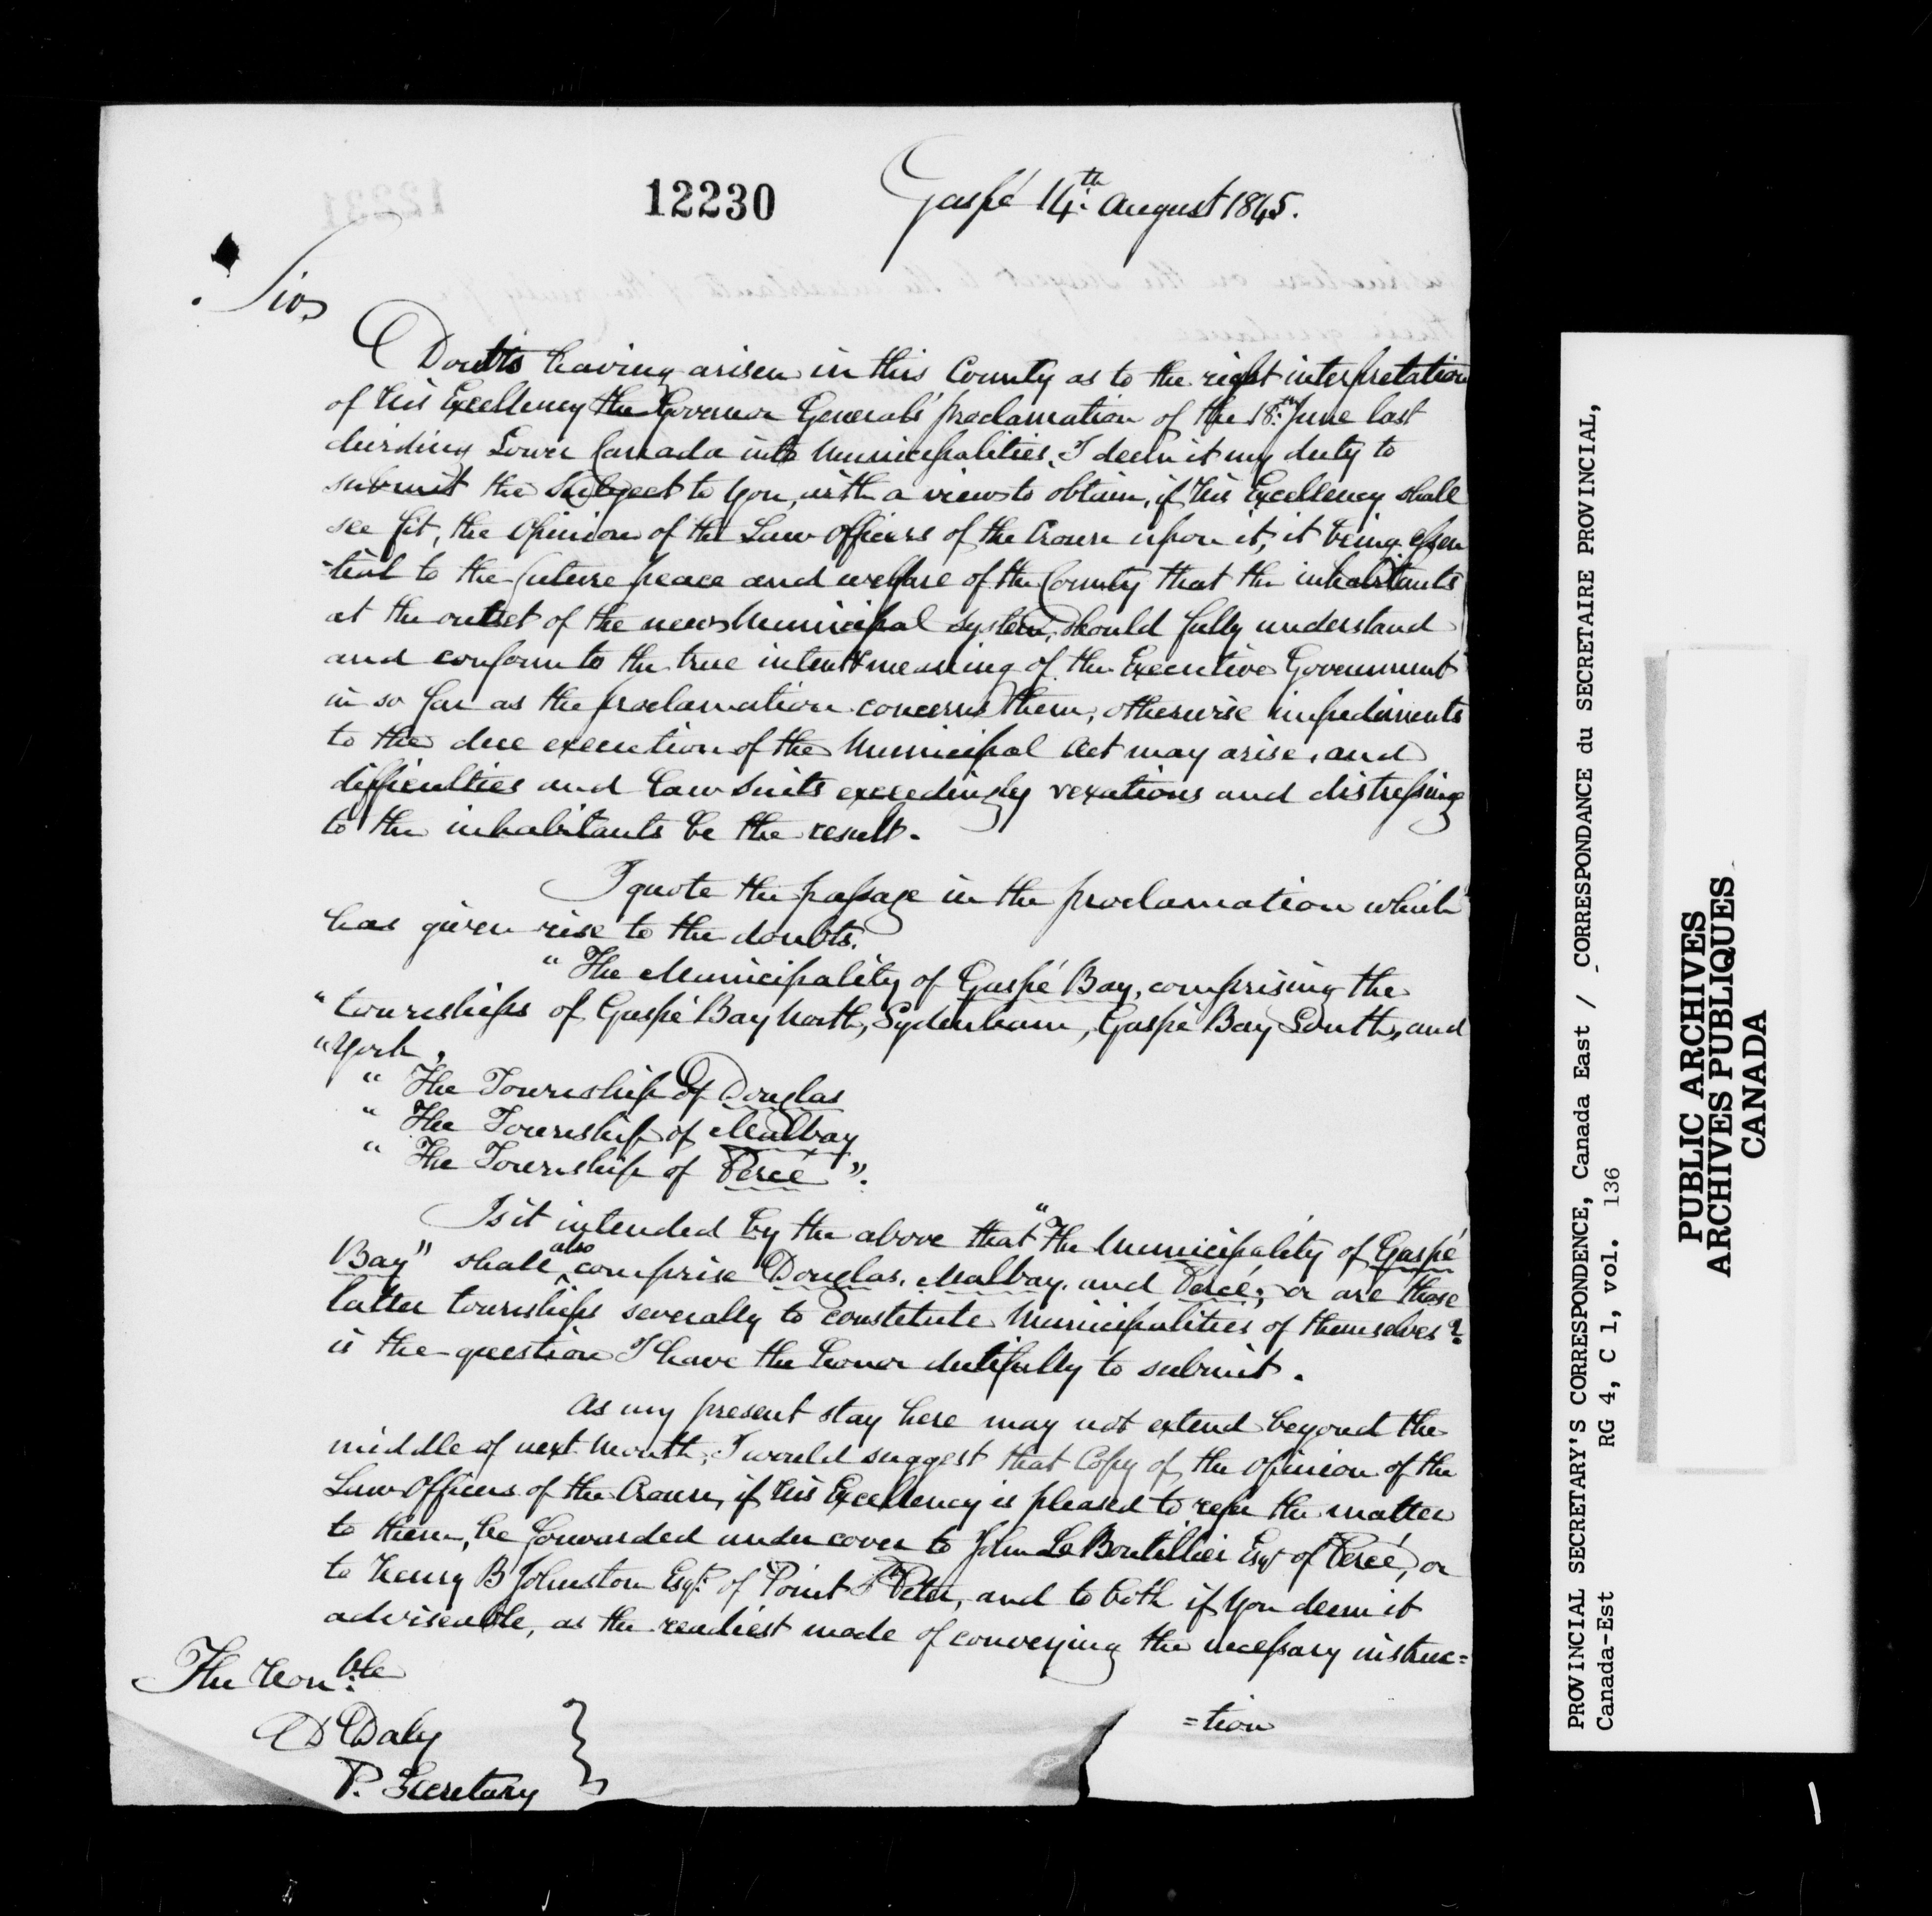 12230
Gaspé 14th August 1845.
Sir,
Doubts having arisen in this County as to the right interpretation
of His Excellency the Governor Generals' proclamation of the 18th June last
dividing Lower Canada into Municipalities, I deem it my duty to
submit the Subject to You, with a view to obtain, if His Excellency shall
see fit, the Opinion of the Law Officers of the Crown upon it, it being essen
-tial to the future peace and welfare of the County that the inhabitants
at the outset of the new Municipal System, should fully understand
and conform to the true intent & meaning of the Executive Government
in so far as the proclamation concerns them, otherwise impediments
to the due execution of the Municipal Act may arise, and
difficulties and Law Suits exceedingly vexatious and distressing
to the inhabitants be the result.
I quote the passage in the proclamation which
has given rise to the doubts.
"The Municipality of Gaspé Bay, comprising the
"townships of Gaspé Bay North, Sydenham, Gaspé Bay South, and
"York,
"The Township of Douglas
"The Township of Malbay
"The Township of Percé".
Is it intended by the above that "The Municipality of Gaspé
Bay" shall also comprise Douglas, Malbay, and Percé; or are those
latter townships severally to constitute Municipalities of themselves?
is the question I have the honor dutifully to submit.
As my present stay here may not extend beyond the
middle of next Month, I would suggest that Copy of the Opinion of the
Law Officers of the Crown, if His Excellency is pleased to refer the matter
to them, be forwarded under cover to John Le Boutillier Esqr of Percé, or
to Henry B Johnston Esqr. of Point St Peter, and to both if You deem it
adviseable, as the readiest mode of conveying the necessary instruc=
=tion
The Honble
D Daly
P. Secretary
PROVINCIAL SECRETARY'S CORRESPONDENCE, Canada East / CORRESPONDANCE du SECRETAIRE PROVINCIAL,
Canada-Est RG 4, C 1, vol. 136
PUBLIC ARCHIVES
ARCHIVES PUBLIQUES
CANADA